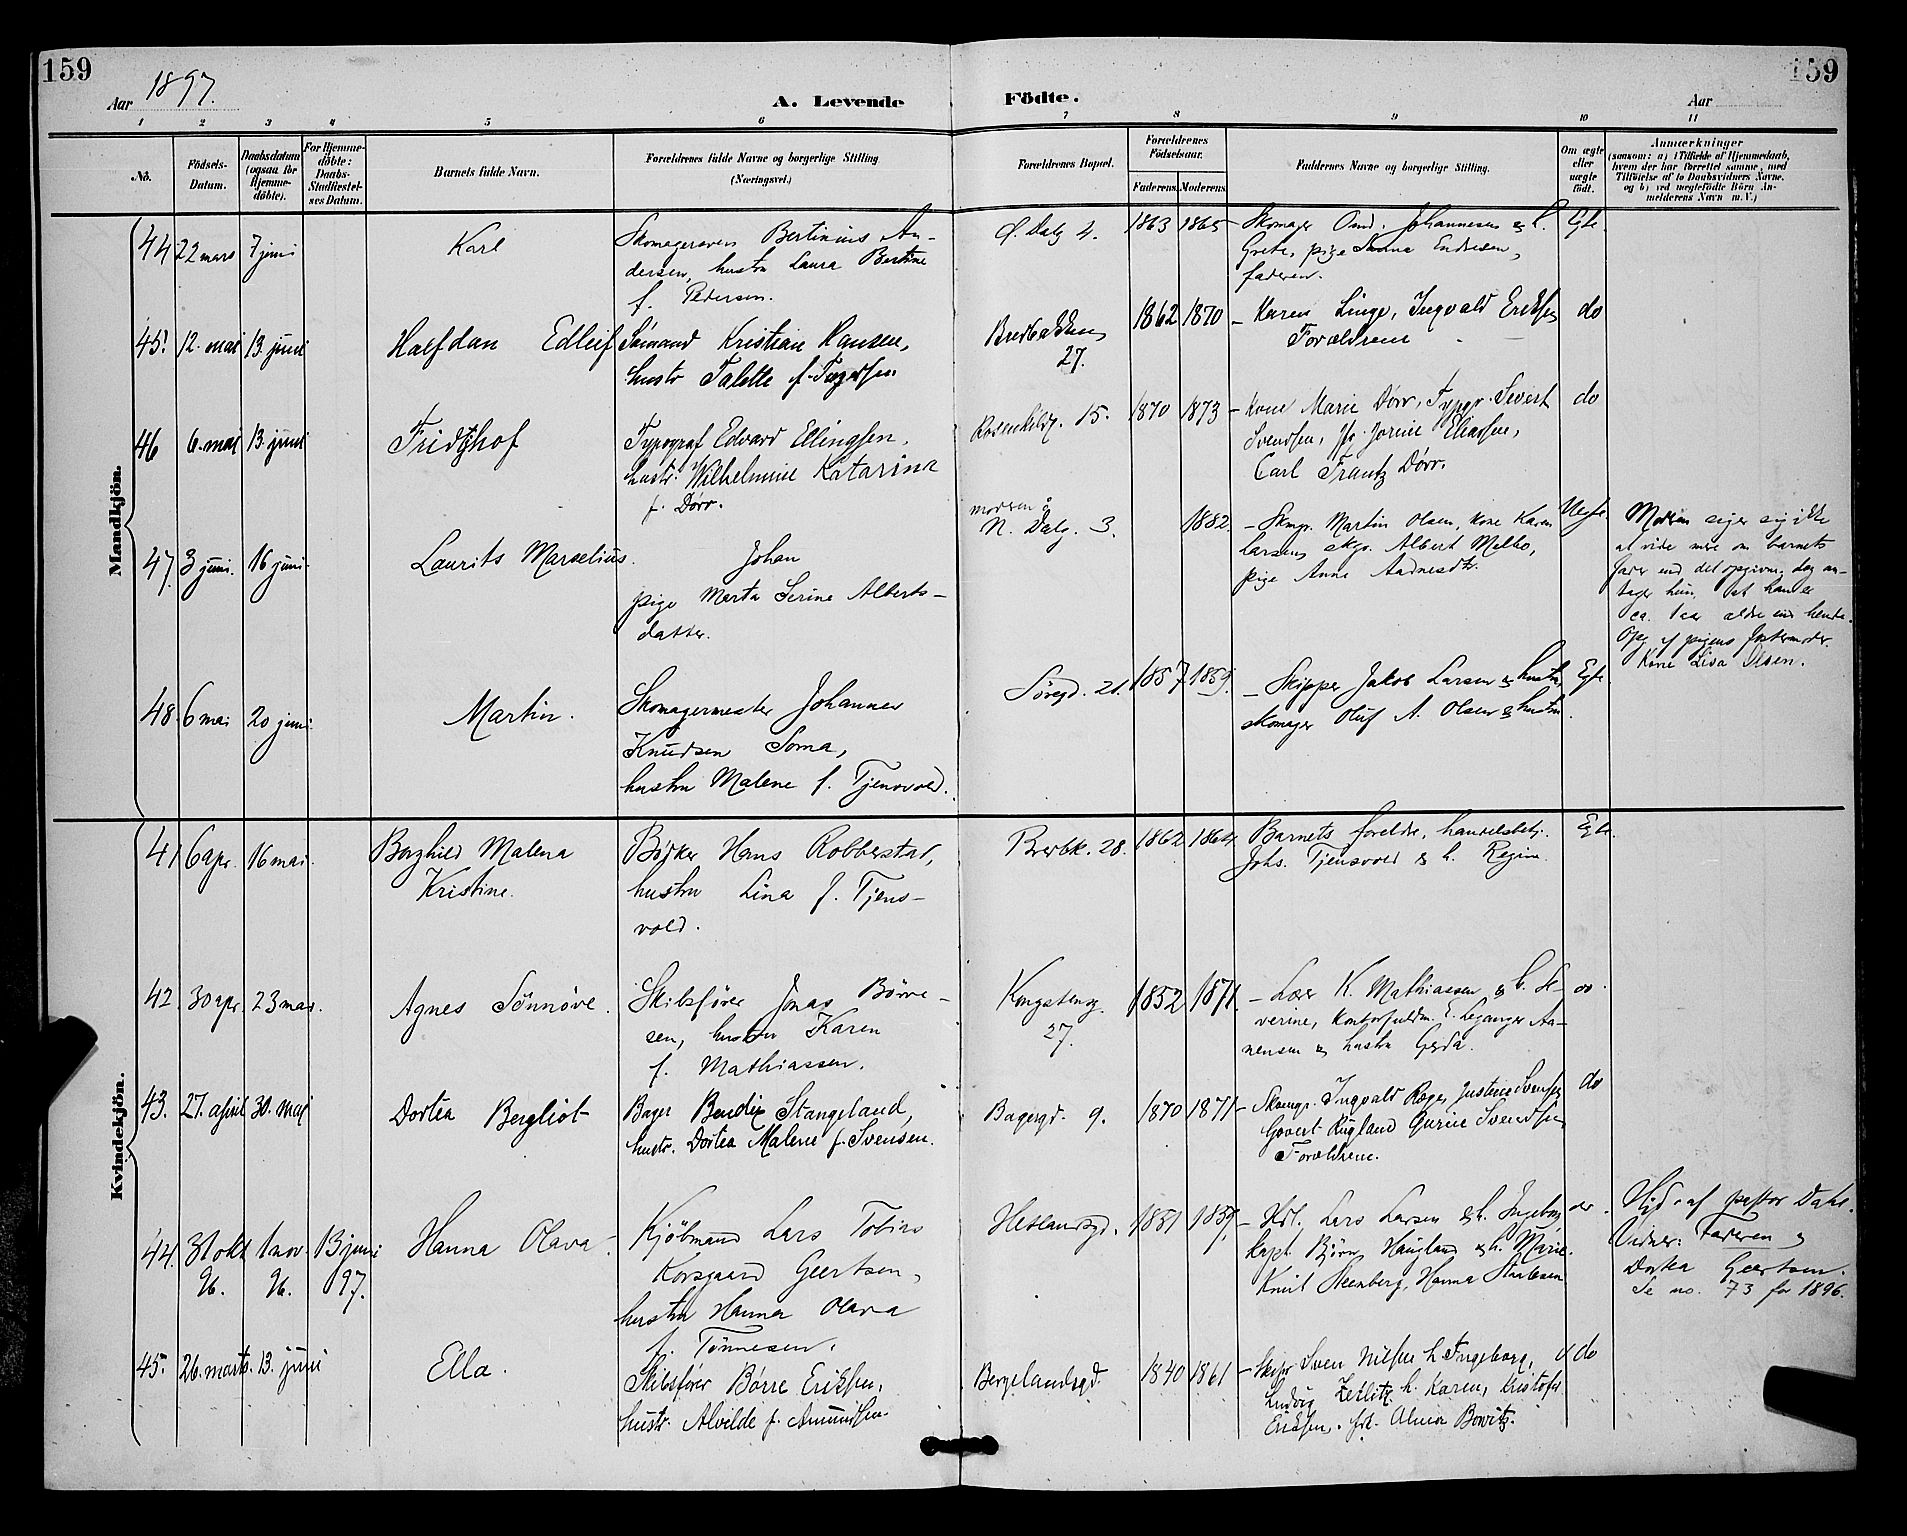 159
159
Aar 1897.
A. Levende Födte.
Aar
1 2 3 4 5 6 7 8 9 10 11
No.
Födsels-
Datum.
Daabsdatum
(ogsaa for
Hjemme-
döbte).
For Hjemme-
döbte:
Daabs-
Stadfæstel-
ses Datum.
Barnets fulde Navn.
Forældrenes fulde Navne og borgerlige Stilling
(Næringsvei.)
Forældrenes Bopæl.
Forældrenes
Födselsaar.
Faderens. Moderens.
Faddernes Navne og borgerlige Stilling.
Om ægte
eller
uægte
födt.
Anmærkninger
(saasom: a) i Tilfælde af Hjemmedaab,
hvem der har forrettet samme, med
Tilföielse af to Daabsvidners Navne,
og b) ved uægtefödte Börn An-
melderens Navn m. V.)
Mandkjön.
44 22 mars 7 juni
Karl
Skomagersvend Bertinius An-
dersen, hustru Laura Bertine
f. Pedersen.
Ø. Dalg 4.
1863 1865
Skomager Omd. Johannesen & h.
Grete, pige Endresen,
faderen.
Egte.
45. 12. mai 13. juni
Halfdan Edleif
Sømand Kristian Hansen,
hustr Talette f.
Bredbakken
27.
1862 1870
Karen Linge, Ingvald Eriksen
Forældrene
do
46 6. mai 13. juni
Fridtjhof
Typograf Edvard Ellingsen,
hustr. Wilhelmine Katarina
f. Dørr.
15.
1870 1873
Kone Marie Dørr, Typgr. Severt
Svendsen, Jfr. Jorine Eliassen,
Carl Frantz Dörr.
do
47. 3 juni. 16 juni
Laurits Marselius.
Johan
pige Marta Serine Alberts-
datter.
moderen:
N. Dalg. 3.
1882
Skmgr. Martin Olsen, kone Karen
Larsen, skgr. Albert Melbo,
pige Anne Aadnesdtr.
Uegte.
Moderen siger sig ikke
at vide mere om barnets
fader end det opgivne, dog an-
tager hun, at han er
ca. 1 aar ældre end hende.
Opg. af pigens fostermoder.
Kone Lisa Olsen.
48. 6 mai 20 juni.
Martin.
Skomagermester Johannes
Knudsen Soma,
hustru Malene f. Tjensvold.
Søregd. 21.
1857 1859.
Skipper Jakob Larsen & hustru,
skomager Oluf A. Olsen & hustru.
Egte.
Kvindekjön.
41 6 apr. 16 mai.
Borghild Malena
Kristine.
Bødker Hans Robberstad,
hustru Lina f. Tjens-
vold.
Bredbk. 28.
1862 1864
Barnets foreldre, handelsbetj.
Johs. Tjensvold & h. Regine.
Egte.
42. 30 apr. 23 mai.
Agnes Sönnöve.
Skibsfører Jonas Børre-
sen, hustru Karen
f. Mathiassen.
Kongstensg.
27.
1852 1871.
Lærer K. Mathiassen & h. Se-
verine, kontorfuldm. E. Leganger Aa-
nensen & hustru Gyda.
do.
43. 27. april 30. mai
Dortea Bergliot
Bager Bendix Stangeland,
hustr. Dortea Malene f. Svensen.
Bagergd. 9.
1870 1871
Skomgr. Ingvald Roge, Justene Svensen
Govert Rugland Gurine Svendsen
Forældrene.
do
44. 31 okt 1 nov. 13 juni
96. 96. 97.
Hanna Olava.
Kjöbmand Lars Tobias
Korsgaard Geertsen,
hustru Hanna Olava
f. Tønnesen.
Hetlandsgd.
1851 1859.
Hdl. Lars Larsen & h. Ingeborg
kapt. Bjørn Haugland & h. Marie.
Knut Steenberg, Hanna Staalesen
do.
Hjd. af pastor Dahl.
Vidner: Faderen &
Dortea Geertsen.
Se no. 73 for 1896.
45. 26. marts. 13. juni
Ella.
Skibsfører Børre Eriksen,
hustr. Alvilde f. Amundsen.
Bergelandsgd.
1840 1861
Skipr Sven Nilsen h. Ingeborg,
Ludvig Zetlitz h. Karen, Kristofer
Eriksen. frk. Alma Bowitz.
do